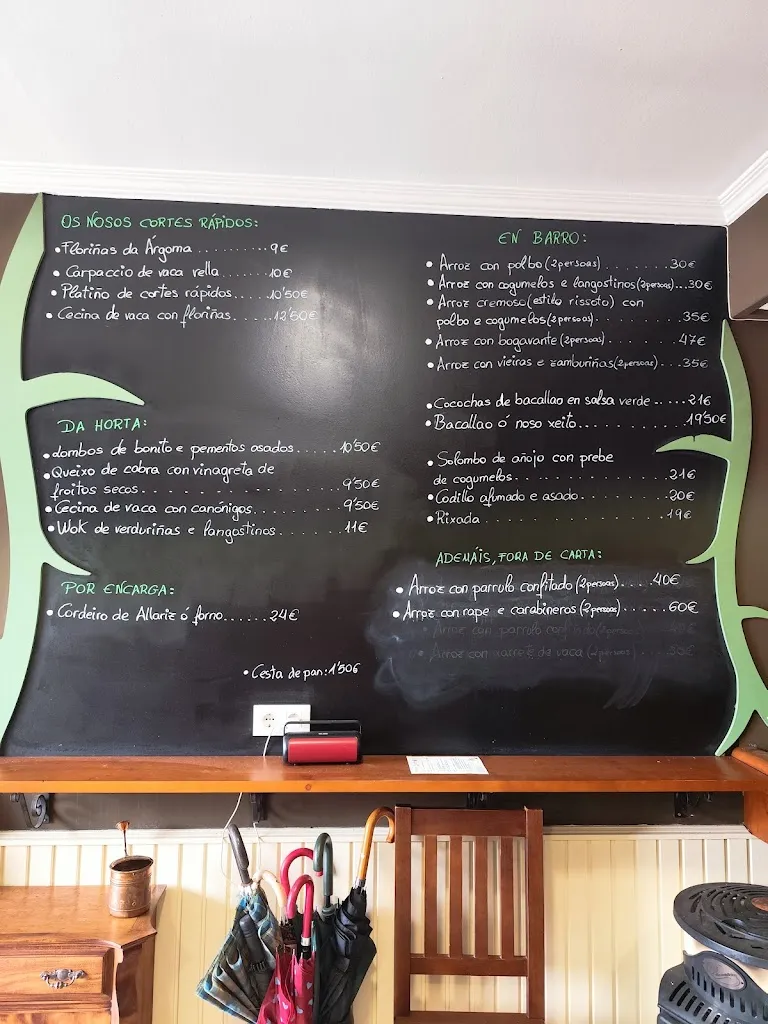 OS NOSOS CORTES RÁPIDOS:
• Floriñas da Árgoma .......... 9€
• Carpaccio de vaca vella ....... 10€
• Platiño de cortes rápidos..... 10'50€
• Cecina de vaca con floriñas.....12'50€
DA HORTA:
• Lombos de bonito e pementos asados......10'50€
• Queixo de cabra con vinagreta de
froitos secos.................... 9'50€
• Cecina de vaca con canónigos......... 9'50€
• Wok de verduriñas e langostinos......... 11€
POR ENCARGA:
• Cordeiro de Allariz ó forno......24€
• Cesta de pan: 1'50€
EN BARRO:
• Arroz con polbo (2persoas)..........30€
• Arroz con cogumelos e langostinos(2persoas)...30€
• Arroz cremoso(estilo rissoto) con
polbo e cogumelos(2persoas)............35€
• Arroz con bogavante (2persoas)..........47€
• Arroz con vieiras e zamburiñas(2persoas)....35€
• Cocochas de bacallao en salsa verde.....21€
• Bacallao ó noso xeito............19'50€
• Solombo de añojo con prebe
de cogumelos....................21€
• Codillo afumado e asado...........20€
• Rixada......................19€
ADEMÁIS, FORA DE CARTA:
• Arroz con parrulo confitado (2persoas).....40€
• Arroz con rape e carabineros (2persoas)......60€
Arroz con parrulo
Arroz con de vaca (2persoas)